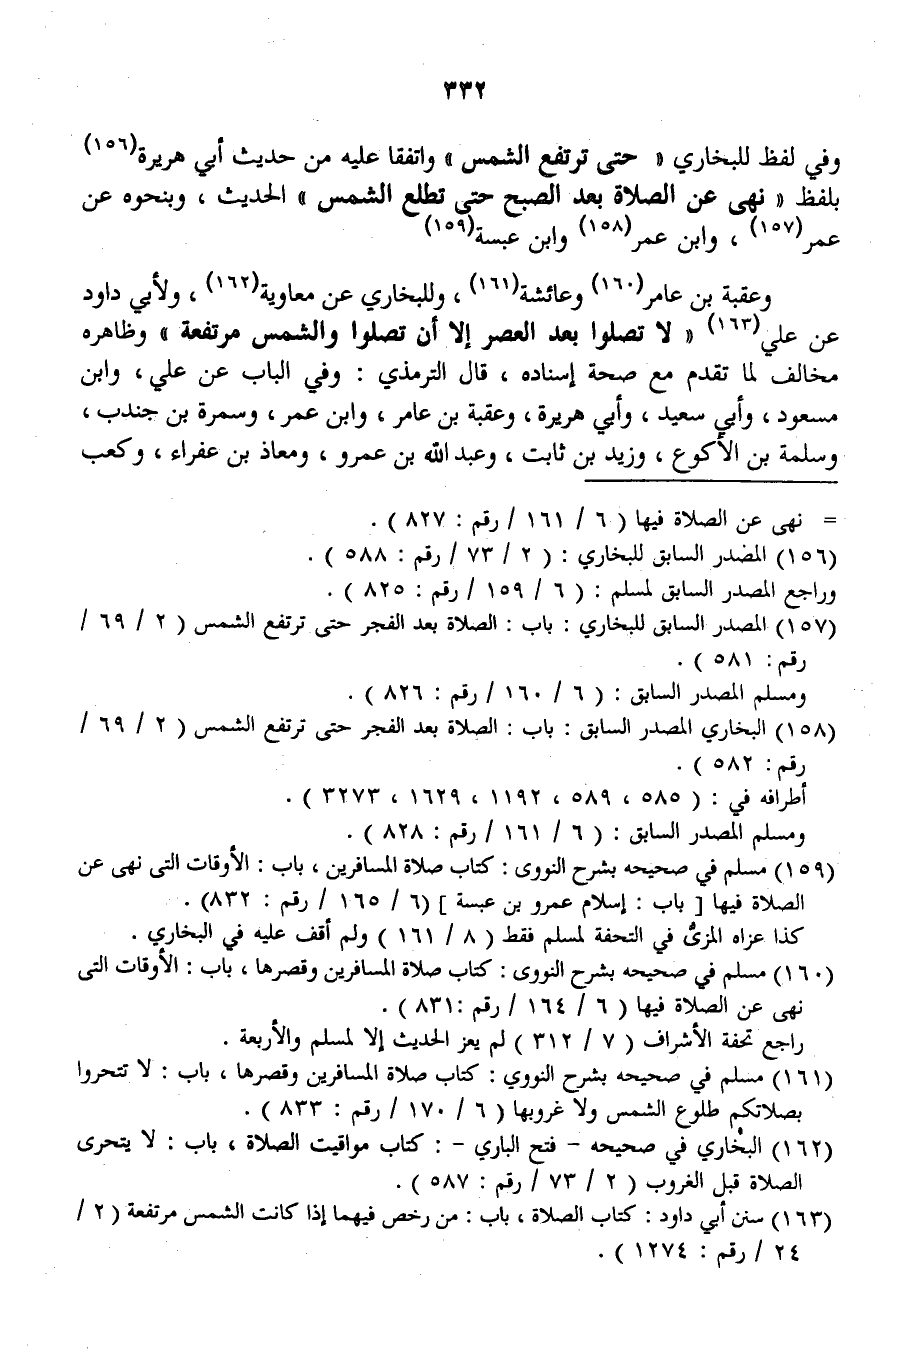 ٣٣٢
وفي لفظ للبخاري « حتى ترتفع الشمس » واتفقا عليه من حديث أبي هريرة(١٥٦)
بلفظ « نهى عن الصلاة بعد الصبح حتى تطلع الشمس » الحديث ، وبنحوه عن
عمر(١٥٧) ، وابن عمر(١٥٨) وابن عبسة(١٥٩)
وعقبة بن عامر(١٦٠) وعائشة(١٦١) ، وللبخاري عن معاوية(١٦٢) ، ولأبي داود
عن علي(١٦٣) « لا تصلوا بعد العصر إلا أن تصلوا والشمس مرتفعة » وظاهره
مخالف لما تقدم مع صحة إسناده ، قال الترمذي : وفي الباب عن علي ، وابن
مسعود ، وأبي سعيد ، وأبي هريرة ، وعقبة بن عامر ، وابن عمر ، وسمرة بن جندب ،
وسلمة بن الأكوع ، وزيد بن ثابت ، وعبد الله بن عمرو ، ومعاذ بن عفراء ، وكعب
= نهى عن الصلاة فيها ( ٦ / ١٦١ / رقم : ٨٢٧ ) .
(١٥٦) المصدر السابق للبخاري : ( ٢ / ٧٣ / رقم : ٥٨٨ ) .
وراجع المصدر السابق لمسلم : ( ٦ / ١٥٩ / رقم : ٨٢٥ ) .
(١٥٧) المصدر السابق للبخاري : باب : الصلاة بعد الفجر حتى ترتفع الشمس ( ٢ / ٦٩ /
رقم : ٥٨١ ) .
ومسلم المصدر السابق : ( ٦ / ١٦٠ / رقم : ٨٢٦ ) .
(١٥٨) البخاري المصدر السابق : باب : الصلاة بعد الفجر حتى ترتفع الشمس ( ٢ / ٦٩ /
رقم : ٥٨٢ ) .
أطرافه في : ( ٥٨٥ ، ٥٨٩ ، ١١٩٢ ، ١٦٢٩ ، ٣٢٧٣ ) .
ومسلم المصدر السابق : ( ٦ / ١٦١ / رقم : ٨٢٨ ) .
(١٥٩) مسلم في صحيحه بشرح النووى : كتاب صلاة المسافرين ، باب : الأوقات التى نهى عن
الصلاة فيها [ باب : إسلام عمرو بن عبسة ] (٦ / ١٦٥ / رقم : ٨٣٢) .
كذا عزاه المزىُّ في التحفة لمسلم فقط ( ٨ / ١٦١ ) ولم أقف عليه في البخاري .
(١٦٠) مسلم في صحيحه بشرح النووى : كتاب صلاة المسافرين وقصرها ، باب : الأوقات التى
نهى عن الصلاة فيها ( ٦ / ١٦٤ / رقم :٨٣١ ) .
راجع تحفة الأشراف ( ٧ / ٣١٢ ) لم يعز الحديث إلا لمسلم والأربعة .
(١٦١) مسلم في صحيحه بشرح النووي : كتاب صلاة المسافرين وقصرها ، باب : لا تتحروا
بصلاتكم طلوع الشمس ولا غروبها ( ٦ / ١٧٠ / رقم : ٨٣٣ ) .
(١٦٢) البخاري في صحيحه - فتح الباري - : كتاب مواقيت الصلاة ، باب : لا يتحرى
الصلاة قبل الغروب ( ٢ / ٧٣ / رقم : ٥٨٧ ) .
(١٦٣) سنن أبي داود : كتاب الصلاة ، باب : من رخص فيهما إذا كانت الشمس مرتفعة ( ٢ /
٢٤ / رقم : ١٢٧٤ ) .